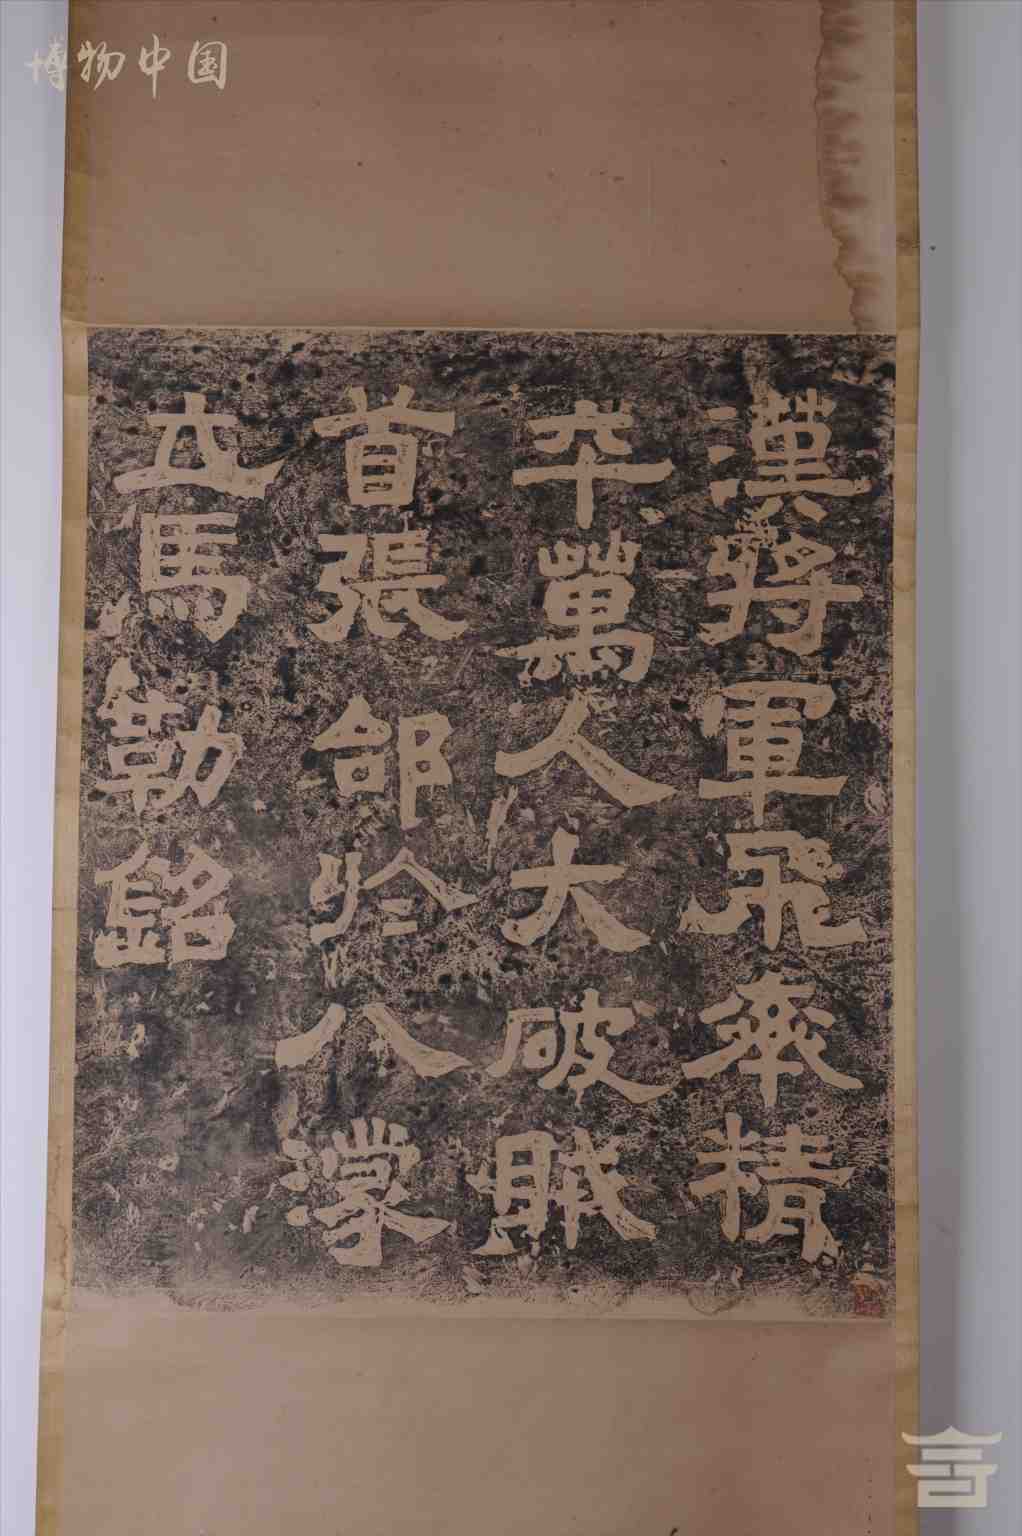 博物中国
漢將軍飛率精
卒萬人大破賊
首張郃於八濛
立馬勒銘